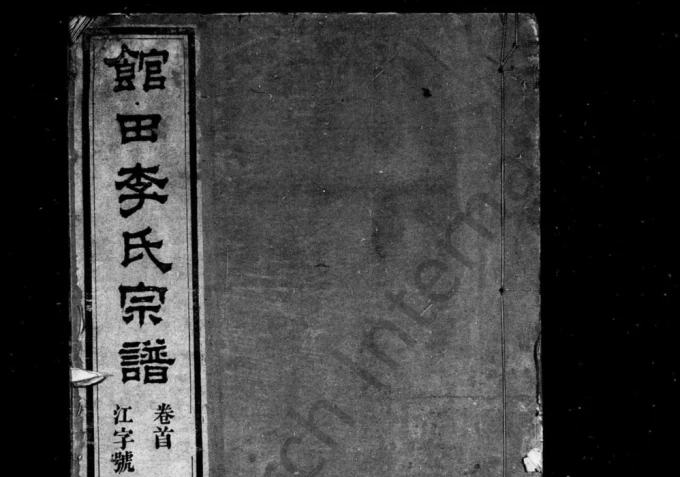 館田李氏宗譜
卷首
江字號
rch Interna